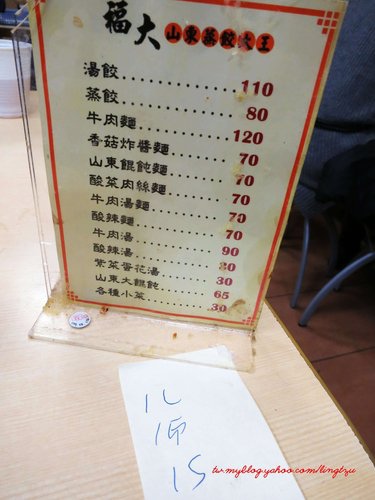 福大山東蒸餃大王
湯餃..............110
蒸餃..............80
牛肉麵............120
香菇炸醬麵........70
山東餛飩麵........70
酸菜肉絲麵........70
牛肉湯麵..........70
酸辣麵............70
牛肉湯............90
酸辣湯............30
紫菜蛋花湯........30
山東大餛飩........65
各種小菜..........30
tw.myblog.yahoo.com/lingtzu